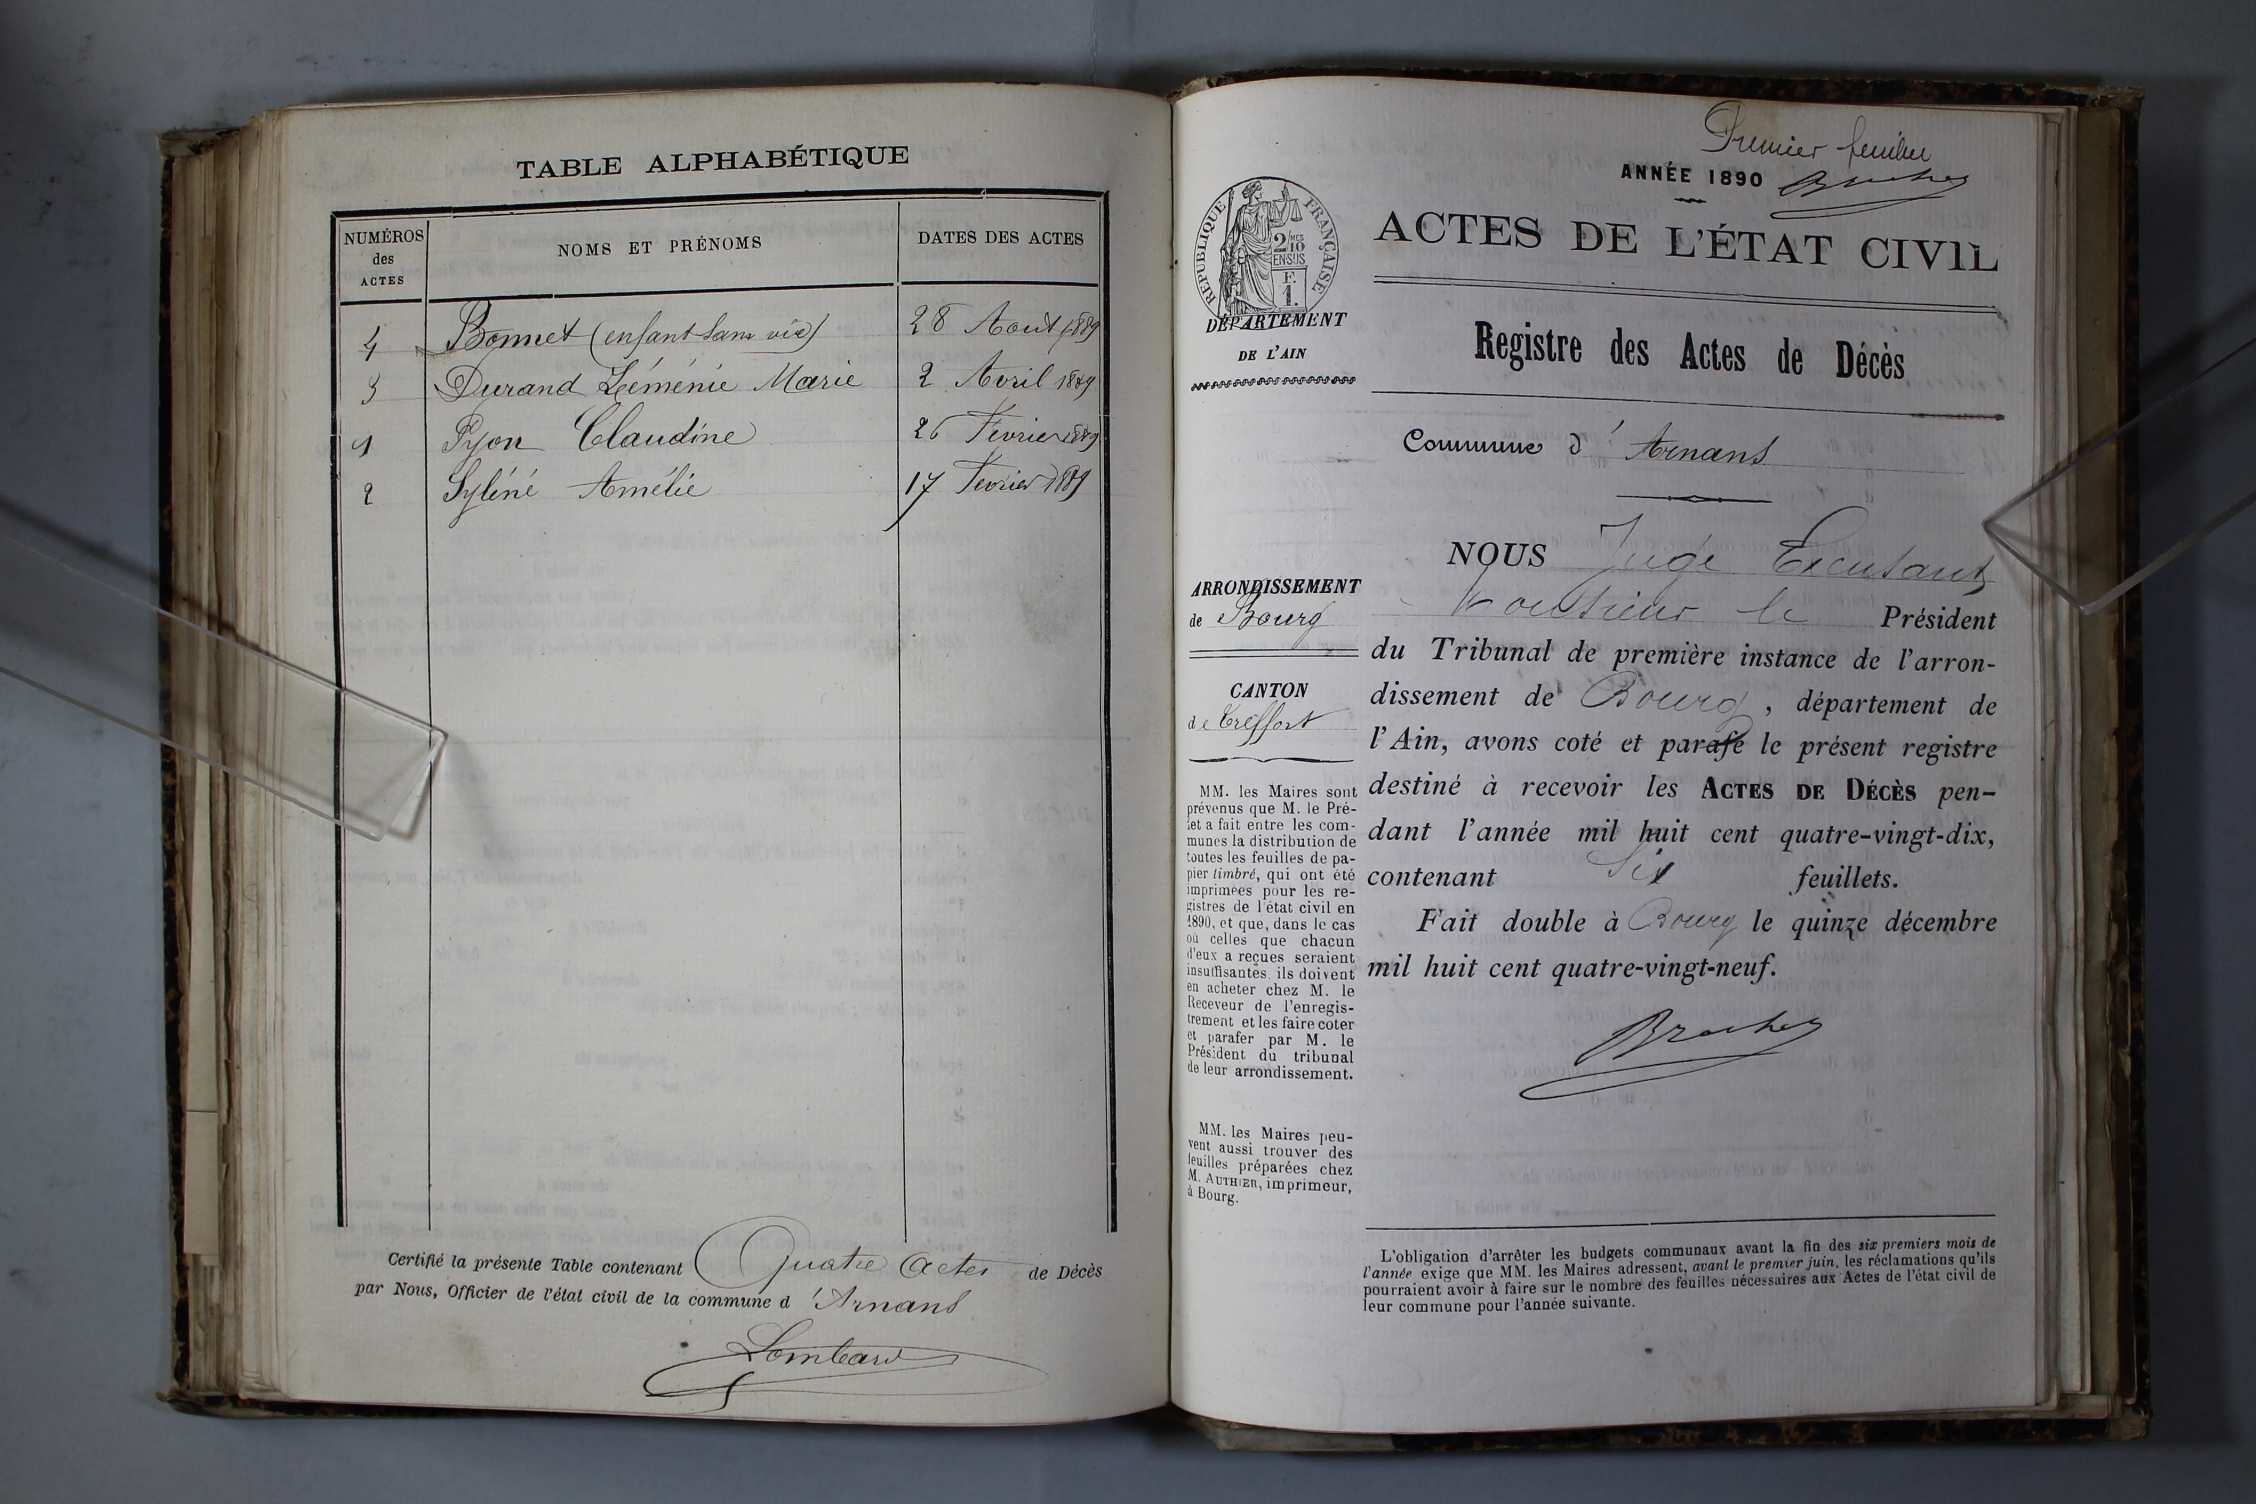 TABLE ALPHABÉTIQUE
NUMÉROS des ACTES
NOMS ET PRÉNOMS
DATES DES ACTES
4 Bonnet (enfant sans vie) 28 Aout 1889
3 Durand Zéménie Marie 2 Avril 1889
1 Pyon Claudine 26 Fevrier 1889
2 Syléné Amélie 17 Fevrier 1889
Certifié la présente Table contenant Quatre Actes de Décès
par Nous, Officier de l'état civil de la commune d'Arnans
Lombard
Premier feuillet
ANNÉE 1890
RÉPUBLIQUE FRANÇAISE
2/10 MES
EN SUS
F.
1.
ACTES DE L'ÉTAT CIVIL
DÉPARTEMENT
DE L'AIN
Registre des Actes de Décès
Commune d'Arnans
ARRONDISSEMENT
de Bourg
CANTON
de Treffort
MM. les Maires sont
prévenus que M. le Pré-
fet a fait entre les com-
munes la distribution de
toutes les feuilles de pa-
pier timbré, qui ont été
imprimées pour les re-
gistres de l'état civil en
1890, et que, dans le cas
où celles que chacun
d'eux a reçues seraient
insuffisantes, ils doivent
en acheter chez M. le
Receveur de l'enregis-
trement et les faire coter
et parafer par M. le
Président du tribunal
de leur arrondissement.
MM. les Maires peu-
vent aussi trouver des
feuilles préparées chez
M. AUTHIER, imprimeur,
à Bourg.
NOUS Juge Excusant
Monsieur le Président
du Tribunal de première instance de l'arron-
dissement de Bourg, département de
l'Ain, avons coté et parafé le présent registre
destiné à recevoir les ACTES DE DÉCÈS pen-
dant l'année mil huit cent quatre-vingt-dix,
contenant Six feuillets.
Fait double à Bourg le quinze décembre
mil huit cent quatre-vingt-neuf.
L'obligation d'arrêter les budgets communaux avant la fin des six premiers mois de
l'année exige que MM. les Maires adressent, avant le premier juin, les réclamations qu'ils
pourraient avoir à faire sur le nombre des feuilles nécessaires aux Actes de l'état civil de
leur commune pour l'année suivante.